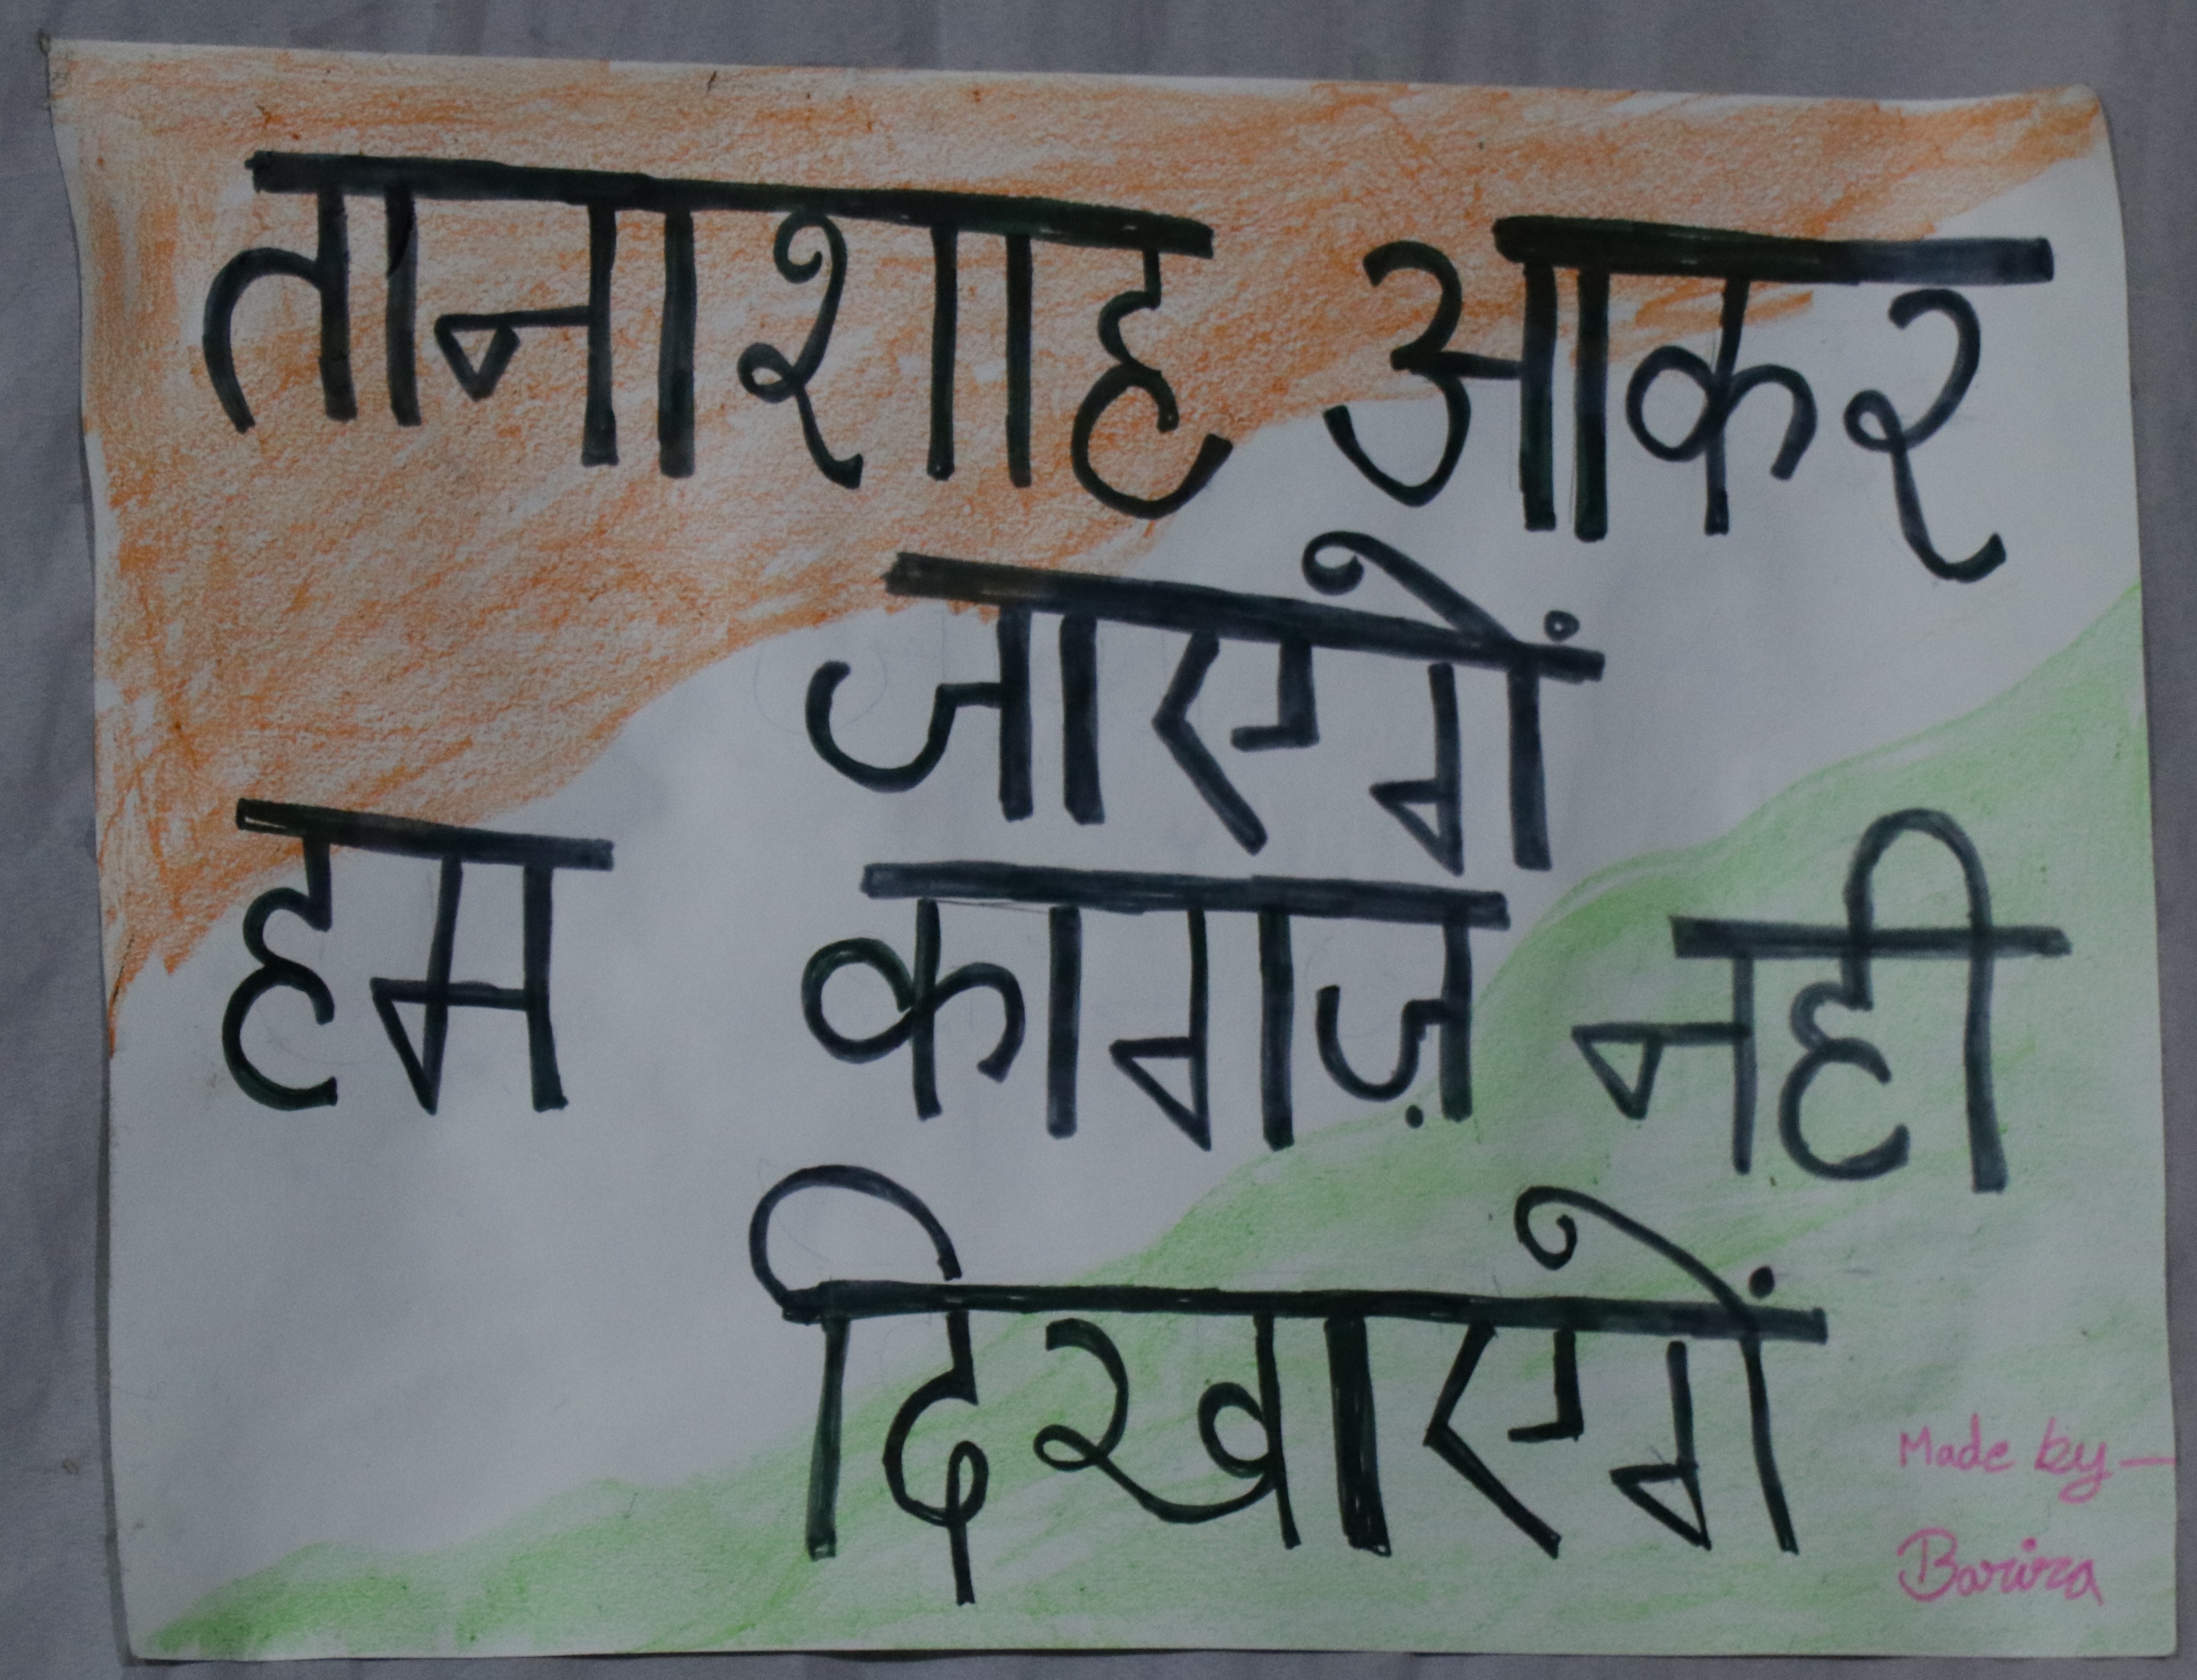 तानाशाह आकर
जाएगें
हम कागज़ नही
दिखाएगें
Made by —
Barirra